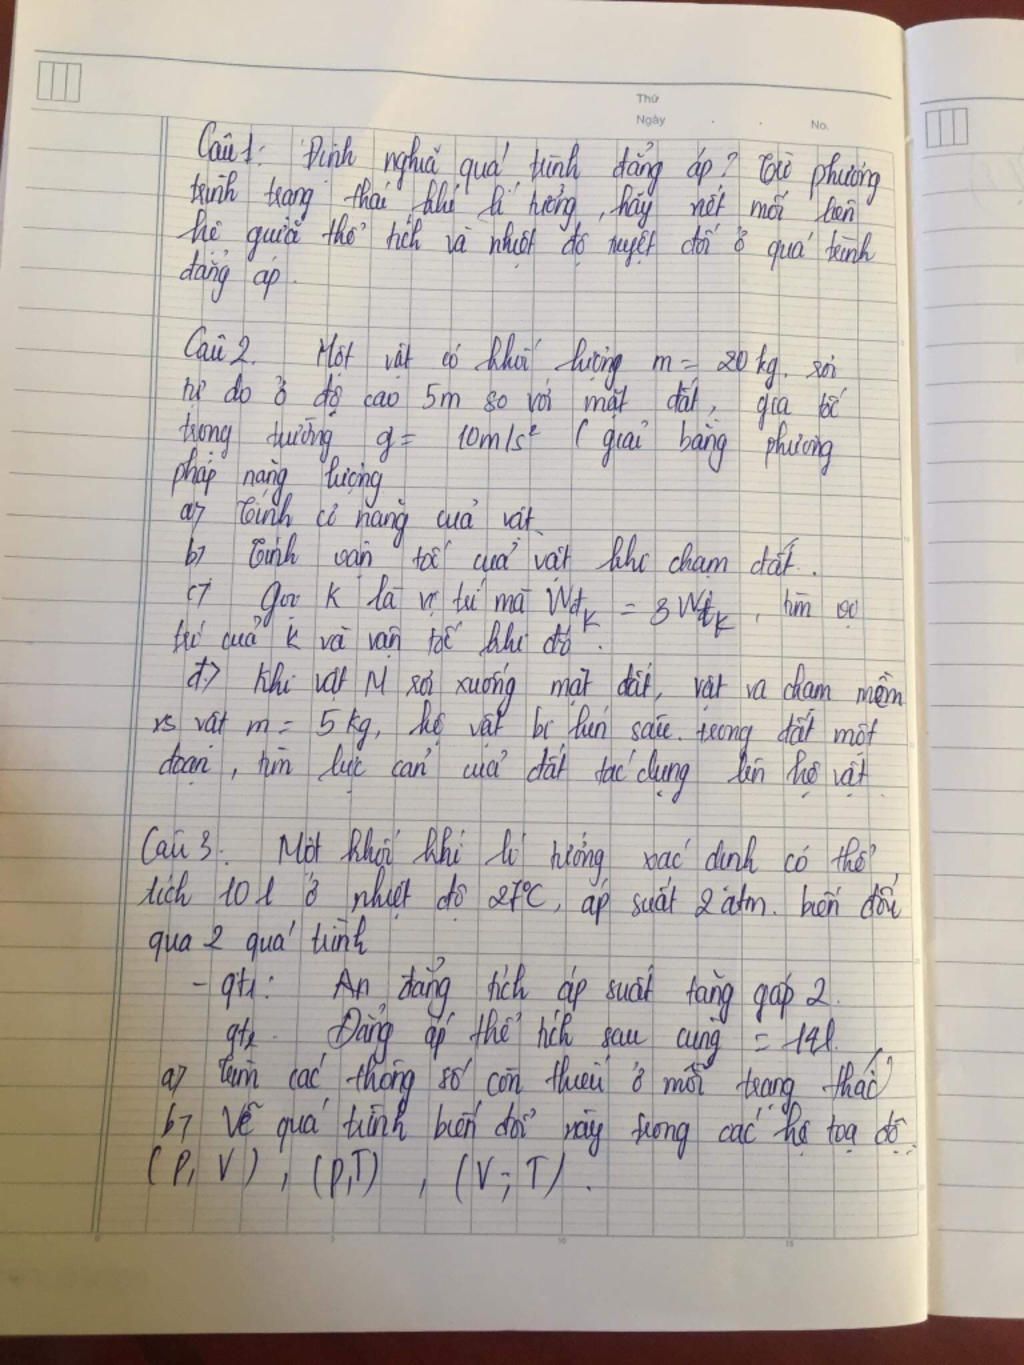 Thứ
Ngày . . No.
Câu 1: Định nghĩa quá trình đẳng áp? Từ phương
trình trạng thái khí lí tưởng, hãy nét mối liên
hệ giữa thể tích và nhiệt độ tuyệt đối ở quá trình
đẳng áp.
Câu 2. Một vật có khối lượng m = 20 kg. rơi
tự do ở độ cao 5m so với mặt đất, gia tốc
trọng trường g = 10m/s² (giải bằng phương
pháp năng lượng
a) Tính cơ năng của vật
b) Tính vận tốc của vật khi chạm đất.
c) Gọi K là vị trí mà WđK = 3WtK, tìm vị
trí của k và vận tốc khi đó.
d) Khi vật M rơi xuống mặt đất, vật va chạm mềm
vs vật m = 5 kg, hệ vật bị lún sâu trong đất một
đoạn, tìm lực cản của đất tác dụng lên hệ vật
Câu 3. Một khối khí lí tưởng xác định có thể
tích 10 l ở nhiệt độ 27°C, áp suất 2 atm. biến đổi
qua 2 quá trình
- qt1: An đẳng tích áp suất tăng gấp 2.
qt2. Đẳng áp thể tích sau cùng = 14l.
a) Tìm các thông số còn thiếu ở mỗi trạng thái
b) Vẽ quá trình biến đổi này trong các hệ toạ độ
(P, V), (P,T), (V; T).